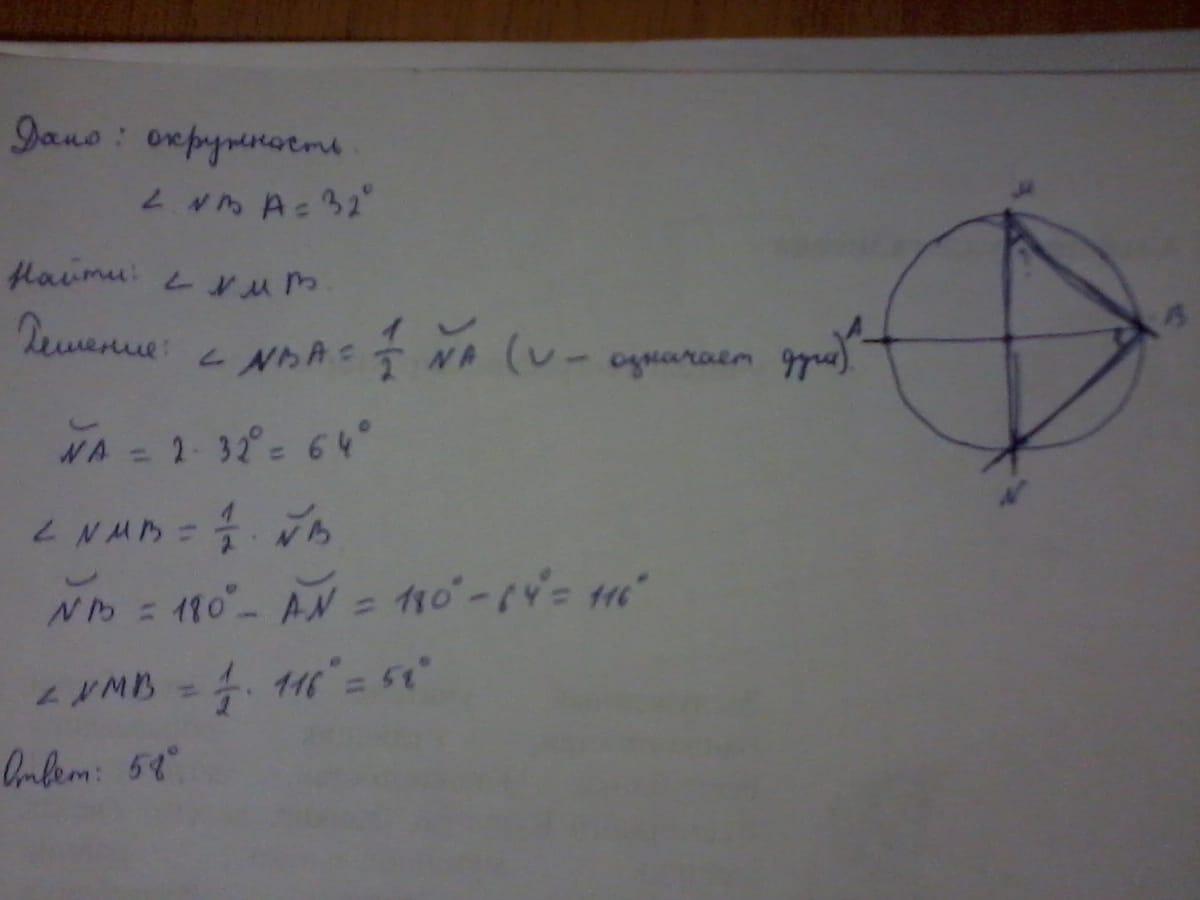 Дано: окружность.
∠ NBA = 32°
Найти: ∠ NMB.
Решение: ∠ NBA = 1/2 ◡NA (◡ – означает дуга)
◡NA = 2 · 32° = 64°
∠ NMB = 1/2 · ◡NB
◡NB = 180° – ◡AN = 180° – 64° = 116°
∠ NMB = 1/2 · 116° = 58°
Ответ: 58°
M
?
A
B
N